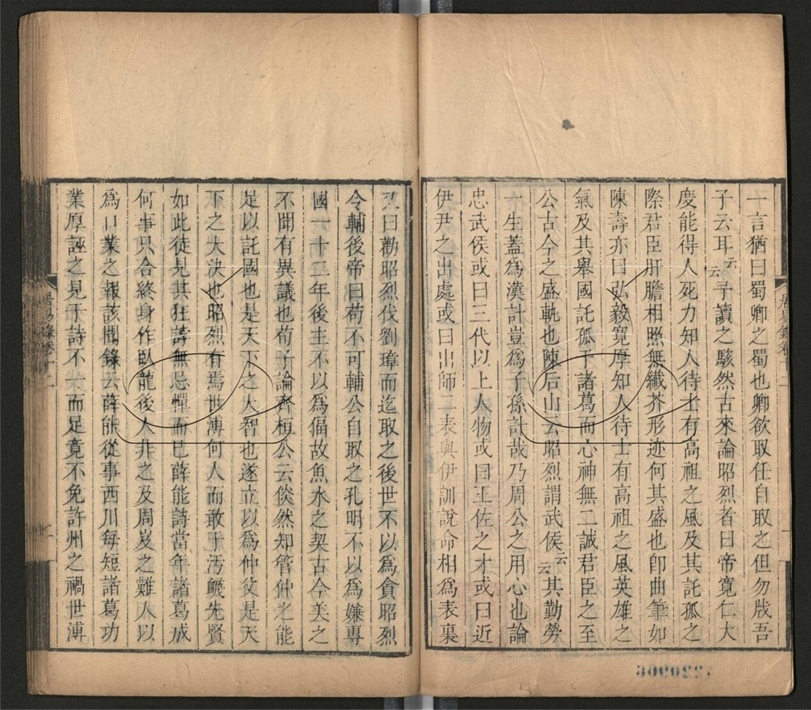 一言猶曰蜀卿之蜀也卿欲取任自取之但勿戕吾
子云耳云云予讀之駭然古來論昭烈者曰帝寬仁大
度能得人死力知人待士有高祖之風及其託孤之
際君臣肝膽相照無纖芥形迹何其盛也卽曲筆如
陳壽亦曰弘毅寬厚知人待士有高祖之風英雄之
氣及其舉國託孤于諸葛而心神無二誠君臣之至
公古今之盛軌也陳后山云昭烈謂武侯云云其勤勞
一生蓋爲漢計豈爲子孫計哉乃周公之用心也論
忠武侯或曰三代以上人物或曰王佐之才或曰近
伊尹之出處或曰出師二表與伊訓說命相爲表裏
又曰勸昭烈伐劉璋而迄取之後世不以爲貪昭烈
令輔後帝曰苟不可輔公自取之孔明不以爲嫌專
國一十二年後主不以爲偪故魚水之契古今美之
不聞有異議也荀子論齊桓公云倓然知管仲之能
足以託國也是天下之大智也遂立以爲仲父是天
下之大決也昭烈有焉世溥何人而敢于污衊先賢
如此徒見其狂誖無忌憚而已薛能詩當年諸葛成
何事只合終身作臥龍後人非之及周岌之難人以
爲口業之報該聞錄云薛能從事西川每短諸葛功
業厚誣之見于詩不一而足竟不免許州之禍世溥
居易錄卷十二
3000997